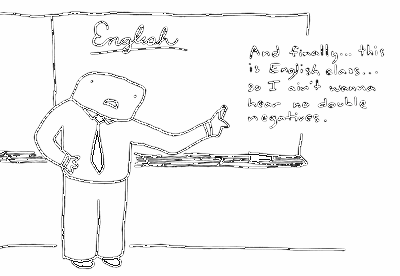 English
And finally... this
is English class...
so I ain't wanna
hear no double
negatives.